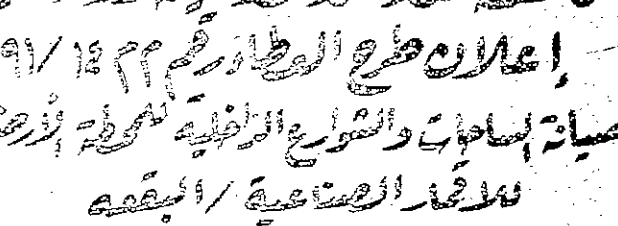 إعلان طرح العطاء رقم م م ١٤ /٩١
صيانة الساحات والشوارع الداخلية للمحطة
للاقمار الصناعية / البقعه